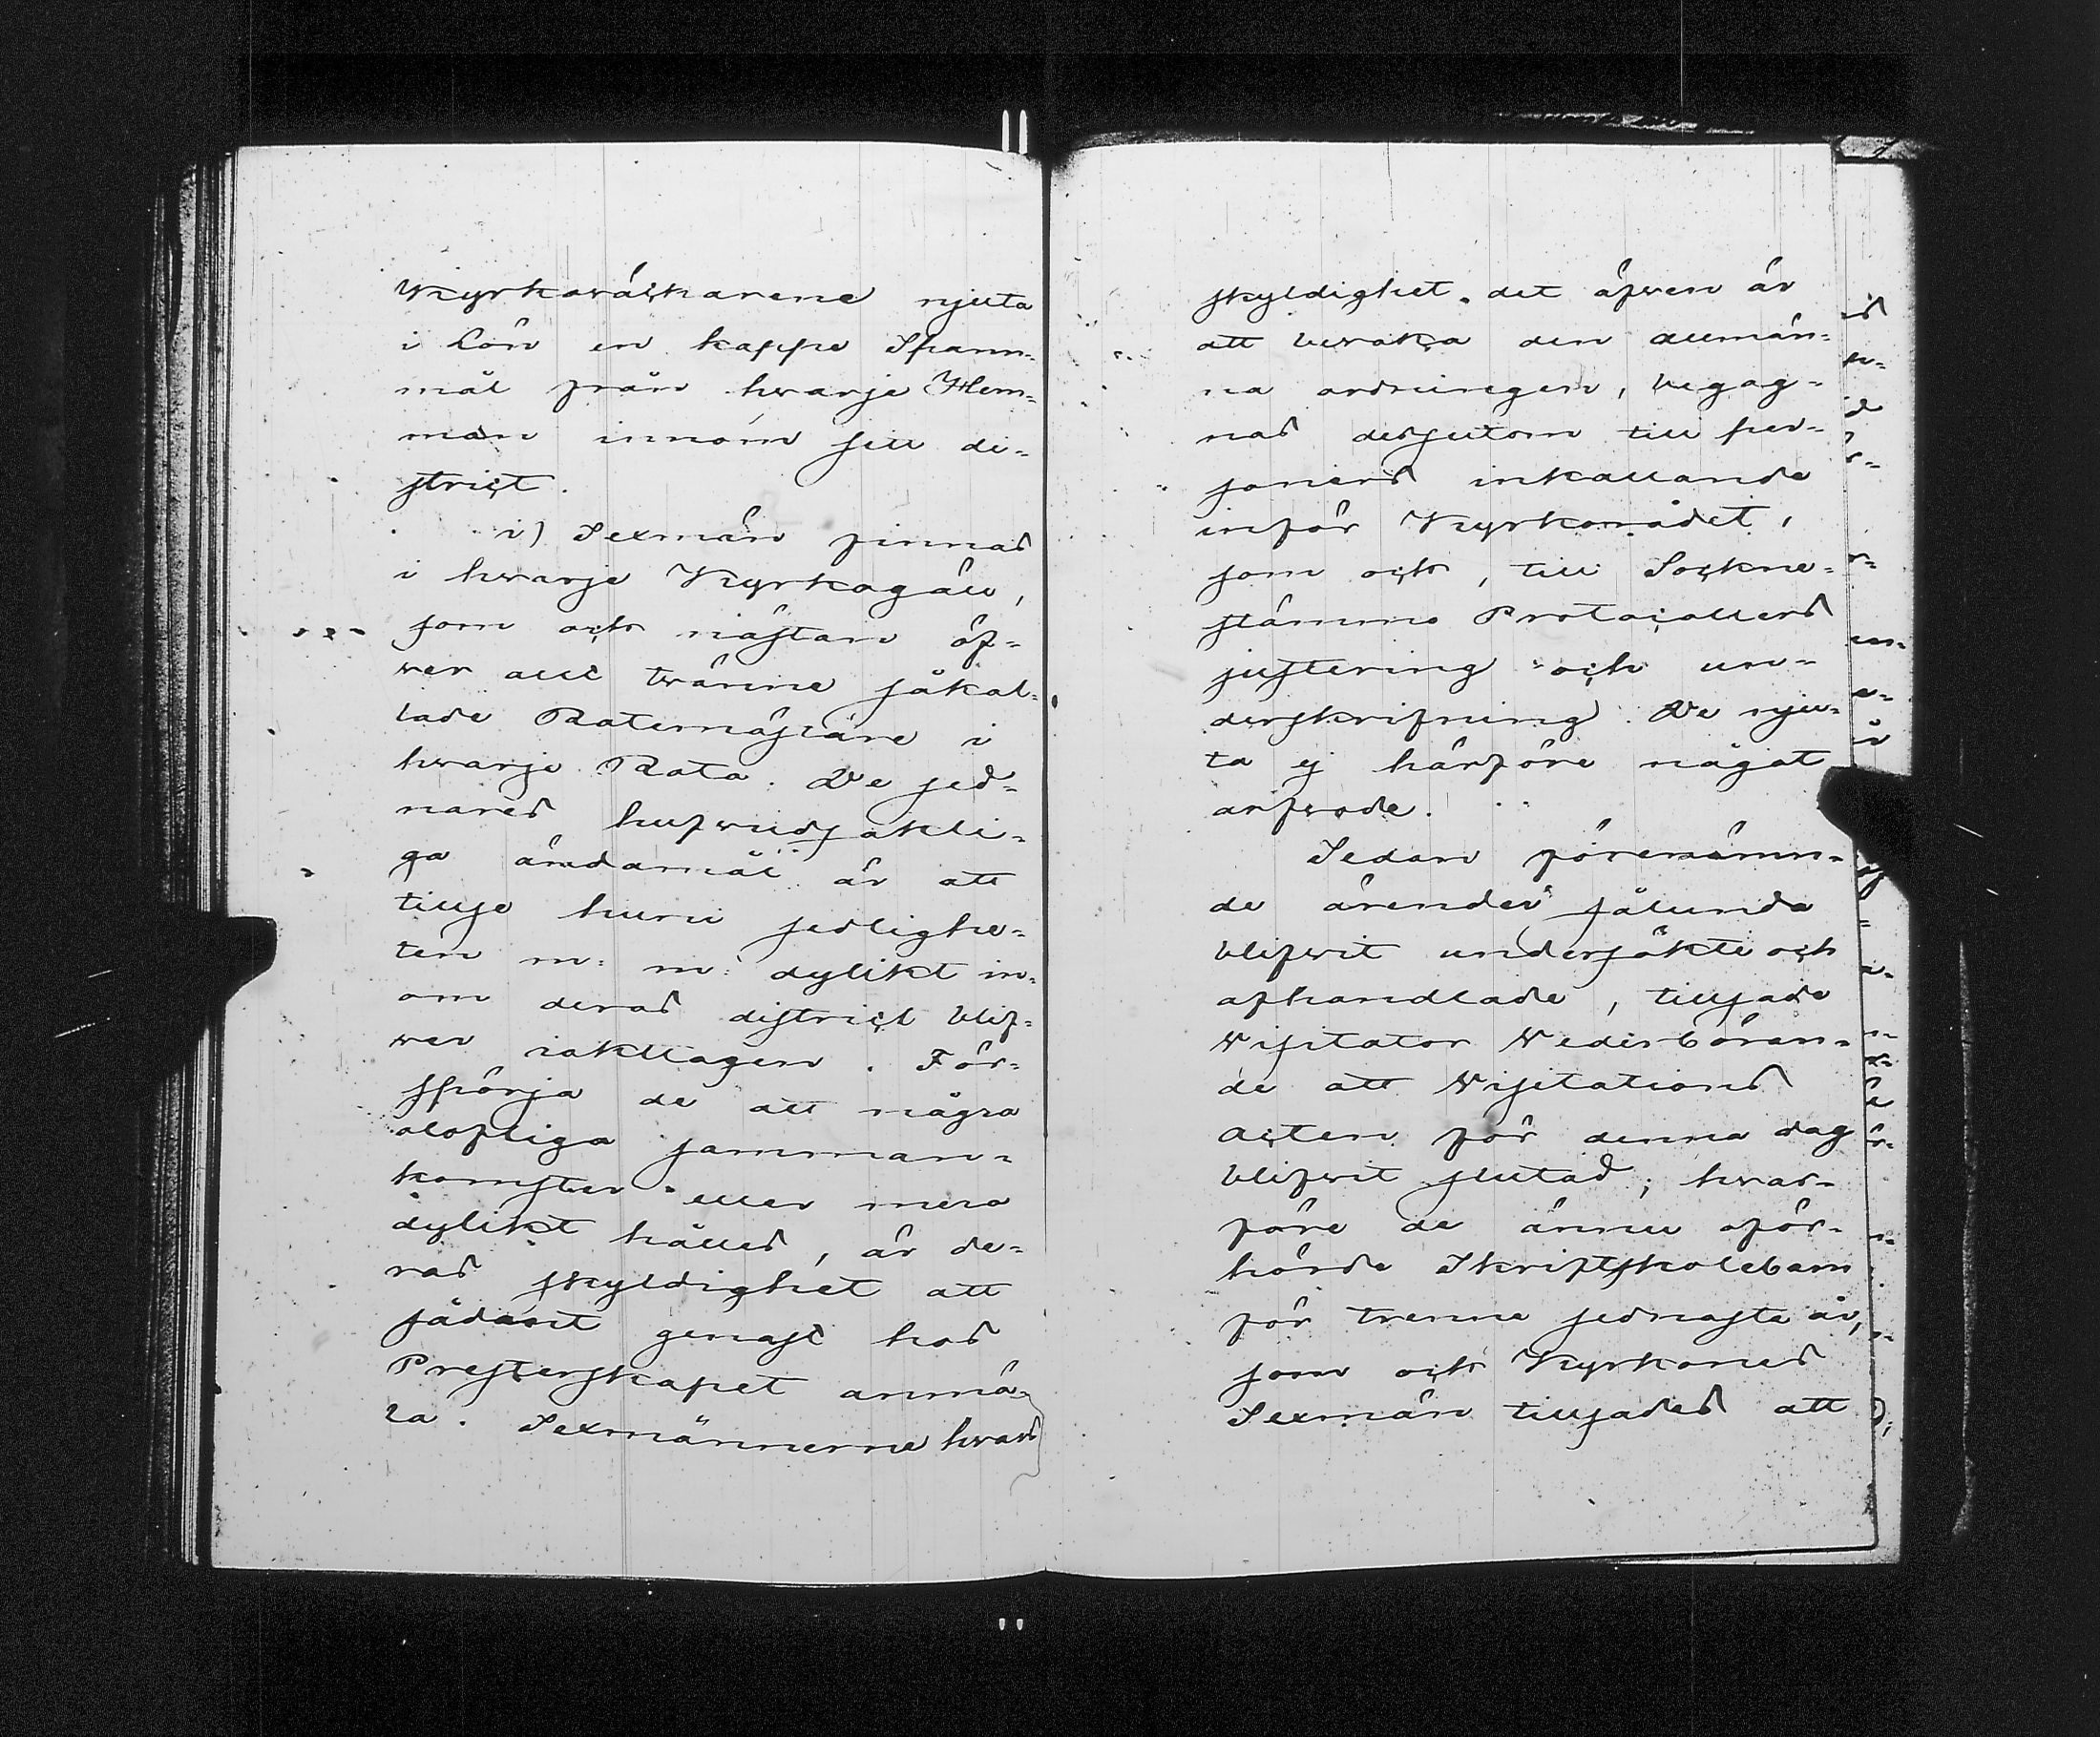 Kyrkoväckarene njuta
i Lön en kappe Spann-
mål från hwarje Hem-
man innom sitt di-
strict.
i) Sexmän finnas
i hwarje Kyrkogäll,
som ock nästan öf-
wer allt twänne såkal-
lade Rotemästare i
hwarje Rota. De sed-
nares hufwudsakli-
ga ändamål är att
tillse huru sedlighe-
ten m: m: dylikt in-
om deras district blif-
wer iakttagen. För-
spörja de att några
olofliga samman-
komster eller mera
dylikt hålles, är de-
ras skyldighet att
sådant genast hos
Presterskapet anmä-
la. Sexmännerne hwars
skyldighet det äfwen är
att bewaka den allmän-
na ordningen, begag-
nas dessutom till per-
soners inkallande
inför Kyrkorådet,
som ock, till Sockne-
stämmo Protocollers
justering och un-
derskrifning. De nju-
ta ej härföre något
arfwode.
Sedan förenämn-
de ärender sålunda
blifwit undersökte och
afhandlade, tillsade
Visitator Vederbören-
de att Visitations
acten för denna dag
blifwit slutad; hwar-
före de ännu oför-
hörde Skriftskolebarn
för trenne sednaste år,
som ock Kyrkones
Sexmän tillsades att